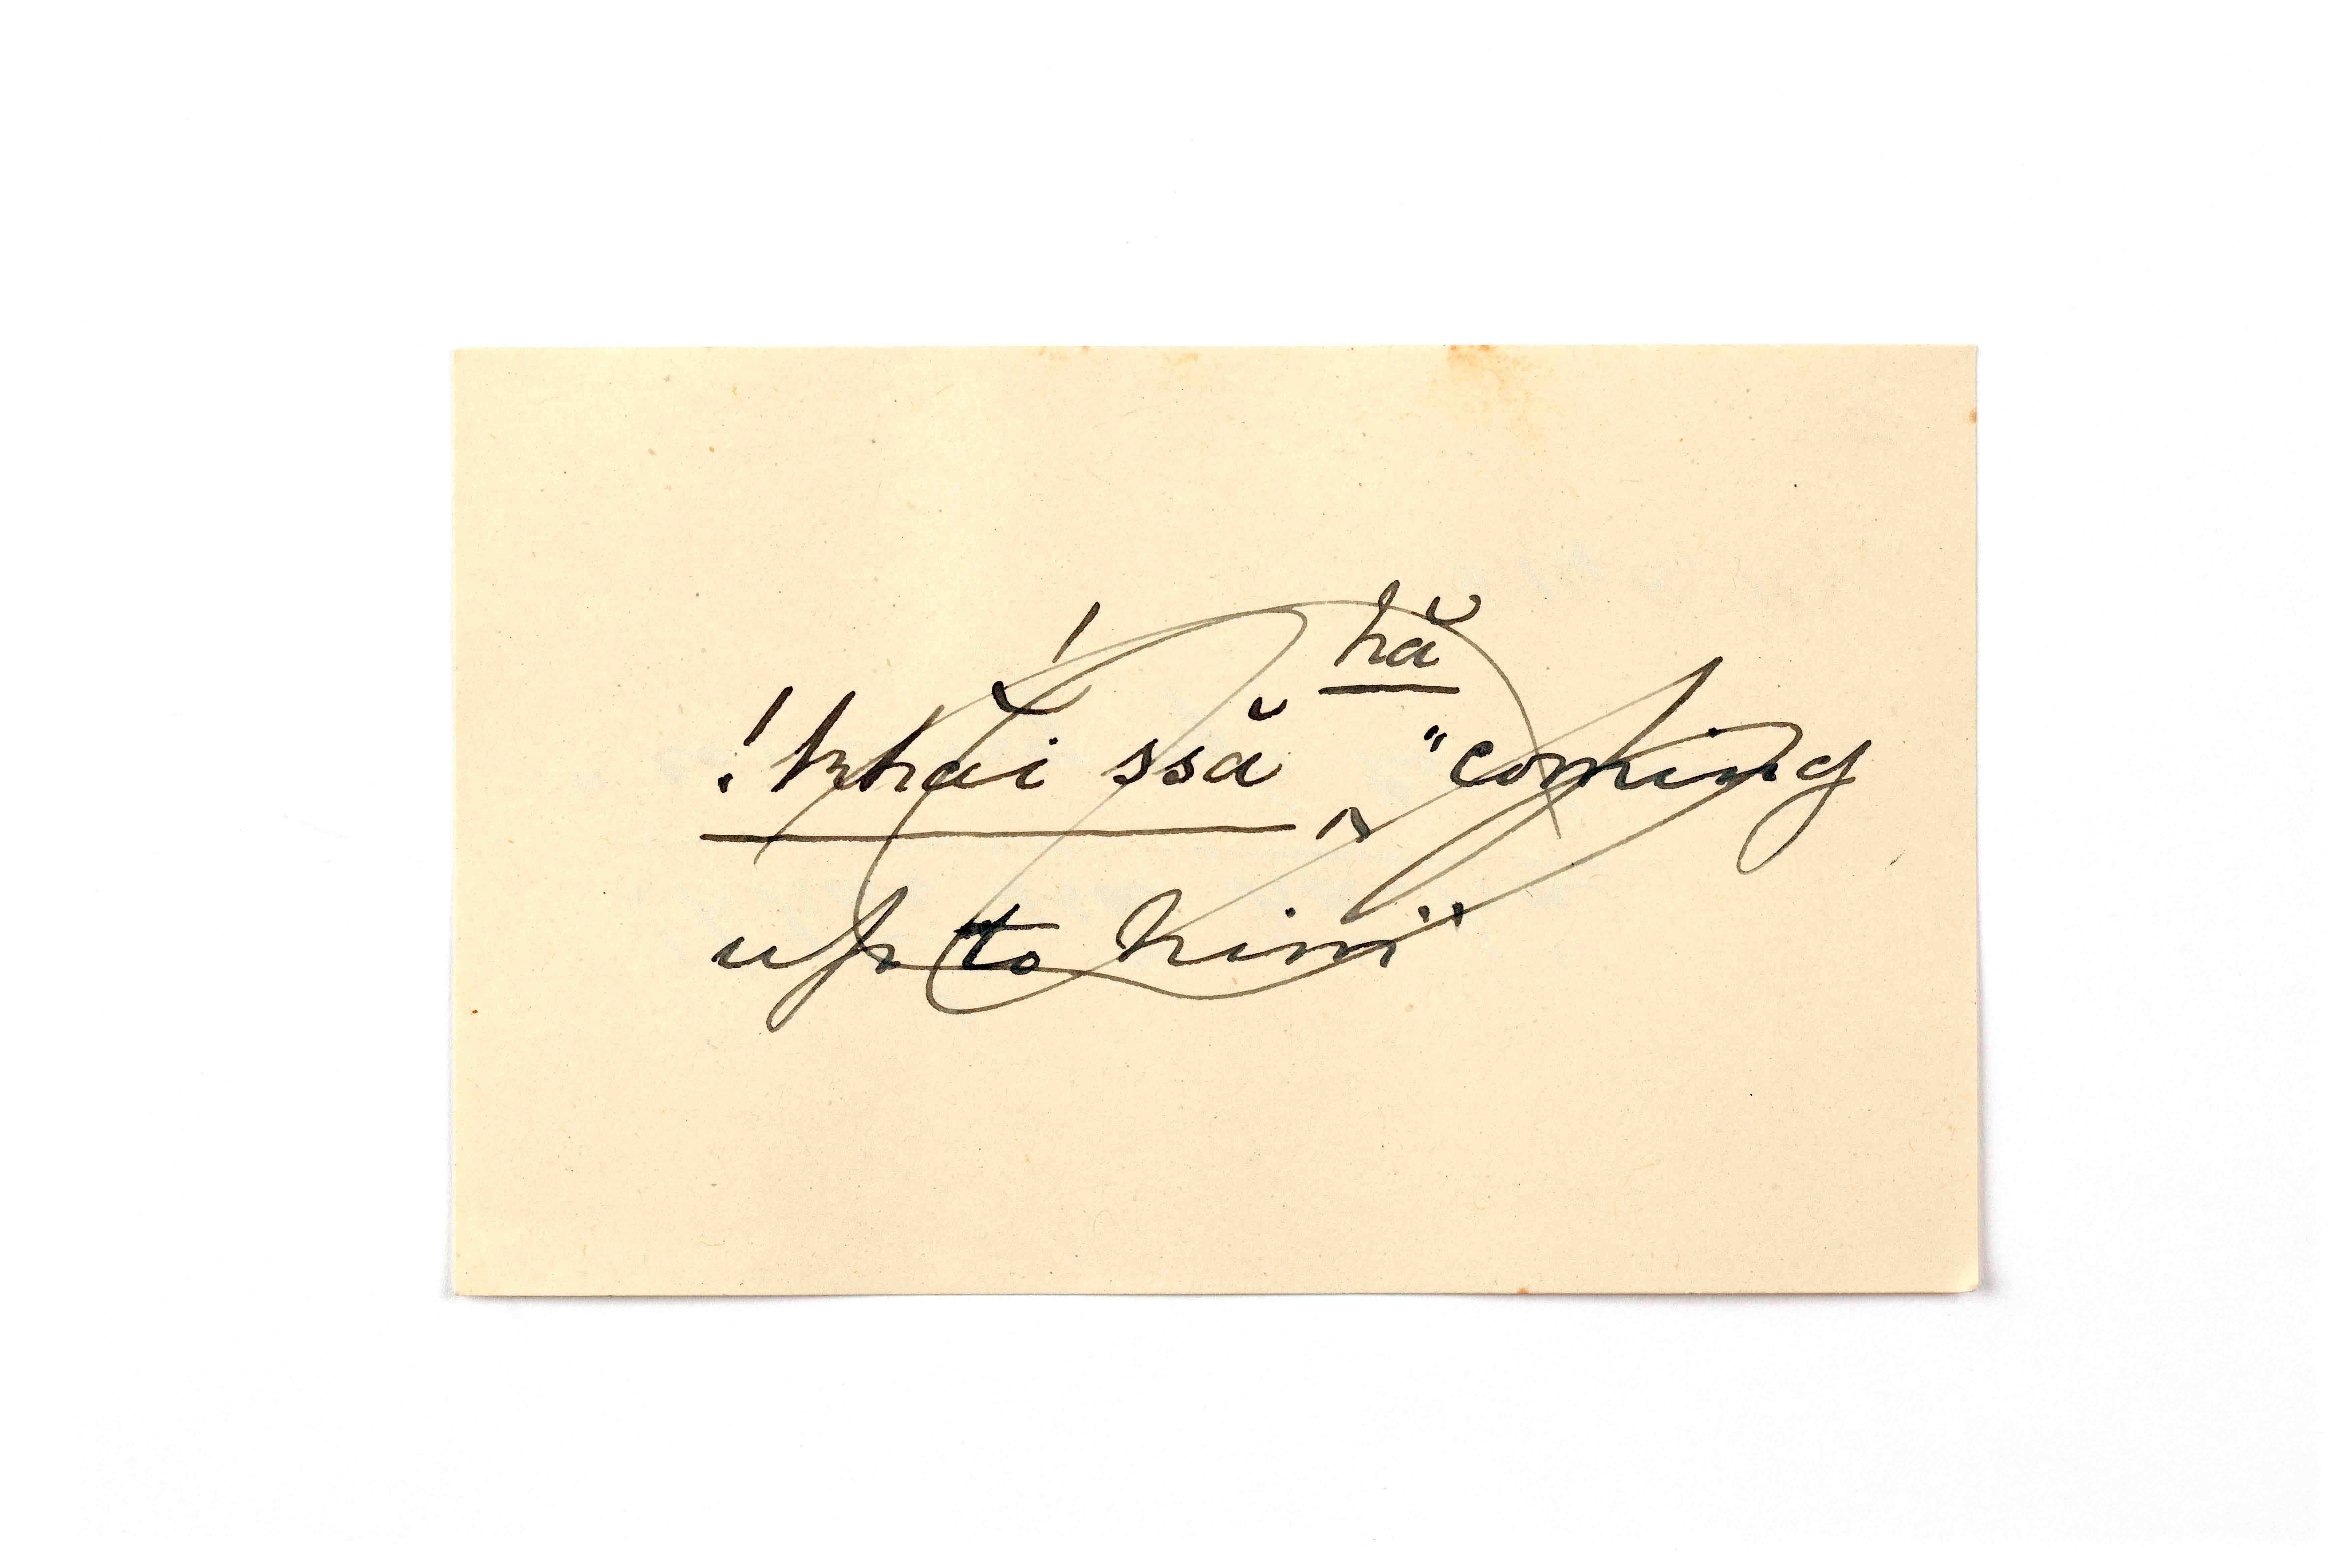 hă
!khắi ssă ‸ "coming
up to him"